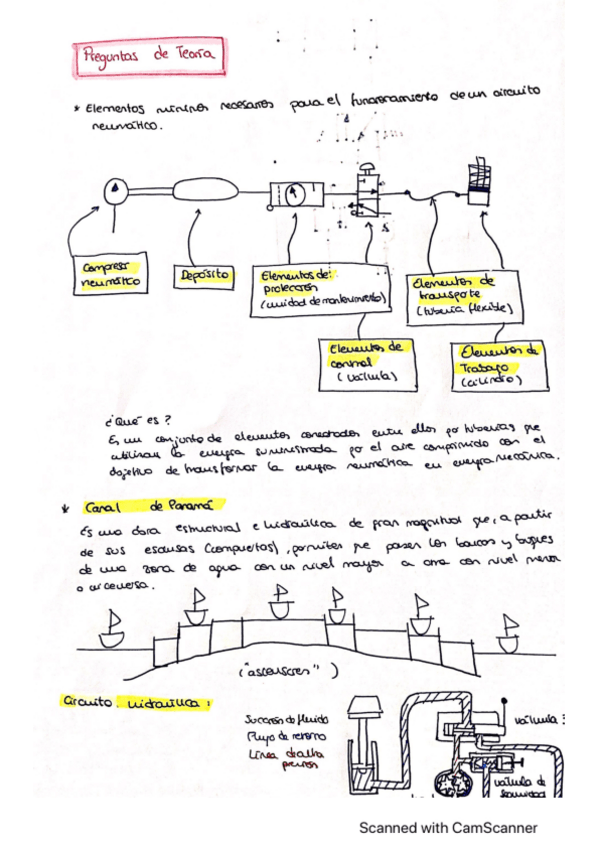 Preguntas de Teoría
* Elementos mínimos necesarios para el funcionamiento de un circuito
neumático.
Compresor
neumático
Depósito
Elementos de
protección
(unidad de mantenimiento)
Elementos de
transporte
(tubería flexible)
Elementos de
control
(válvula)
Elementos de
Trabajo
(cilindro)
¿Qué es?
Es un conjunto de elementos conectados entre ellos por tuberías que
utilizan la energía suministrada por el aire comprimido con el
objetivo de transformar la energía neumática en energía mecánica.
* Canal de Panamá
Es una obra estructural e hidráulica de gran magnitud que, a partir
de sus esclusas (compuertas), permiten que pasen los barcos y buques
de una zona de agua con un nivel mayor a otra con nivel menor
o viceversa.
("ascensores")
Circuito hidráulica:
Succión de fluido
Flujo de retorno
Línea de alta
presión
válvula
válvula de
Scanned with CamScanner